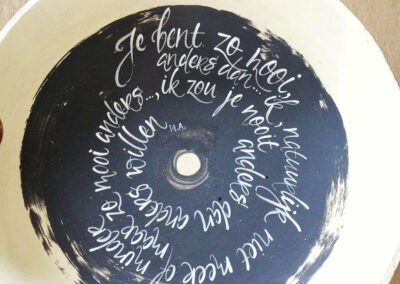 Je bent zo mooi,
anders dan... ik, natuurlijk niet meer of minder
maar zo mooi anders..., ik zou je nooit
anders dan anders willen
H.A.